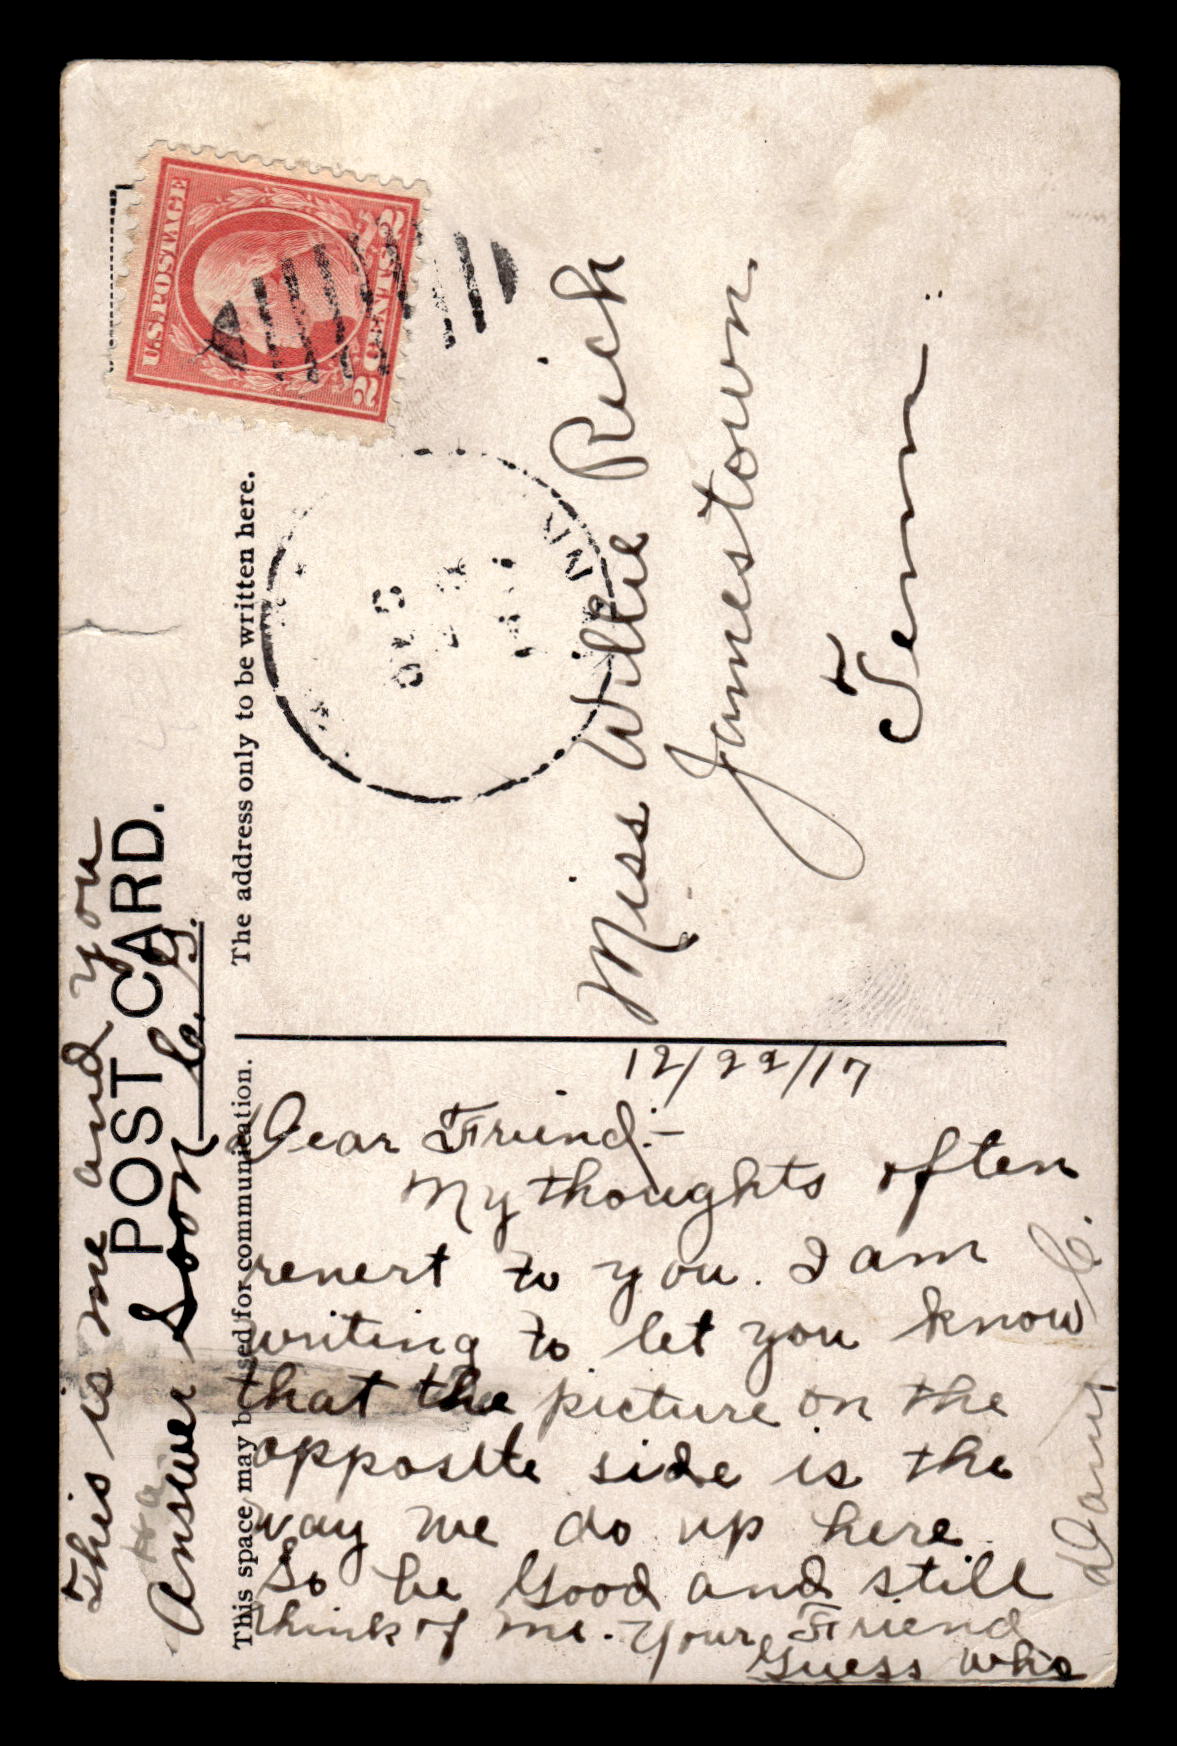 This is me and you
POST CARD.
Answer Soon C. G.
This space may be used for communication.
The address only to be written here.
U.S. POSTAGE
2 CENTS 2
12/22/17
Dear Friend:-
My thoughts often
revert to you. I am
writing to let you know
that the picture on the
opposite side is the
way we do up here
So be Good and still
think of me. Your Friend
Guess who
Miss Willie Rich
Jamestown
Tenn